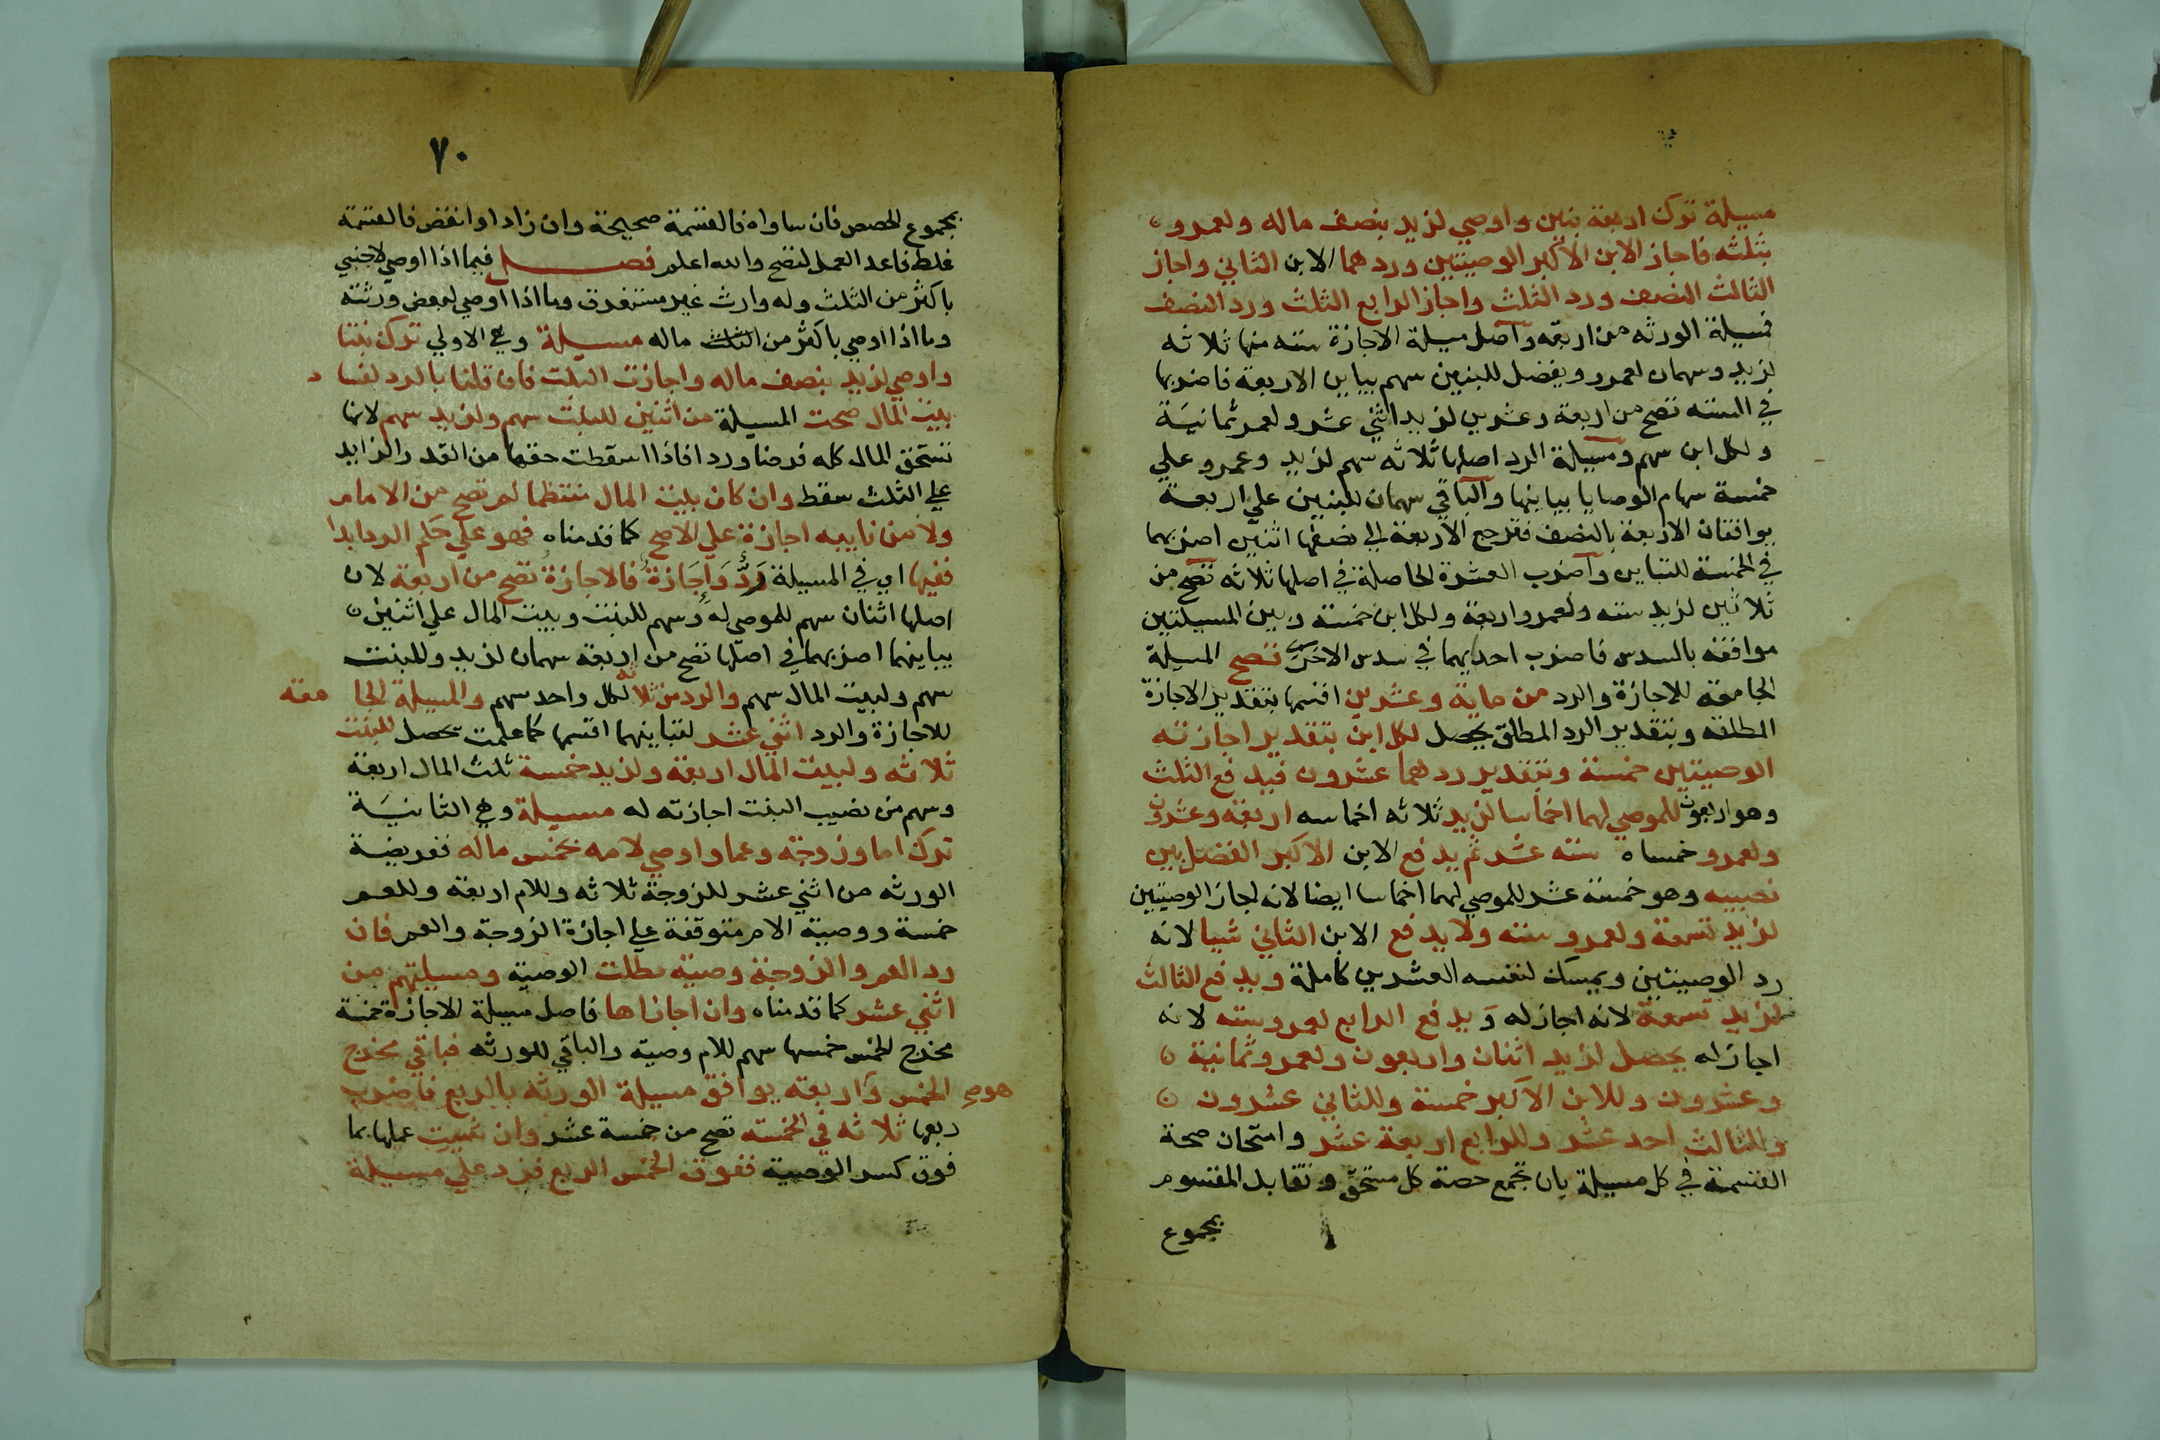 مسيلة ترك اربعة بنين واوصي لزيد بنصف ماله ولعمرو
بثلثه فاجاز الابن الاكبر الوصيتين وردهما الابن الثاني واجاز
الثالث النصف ورد الثلث واجاز الرابع الثلث ورد النصف
فمسيلة الورثه من اربعه واصل مسيلة الاجازة سته منها ثلاثه
لزيد وسهمان لعمرو ويفضل للبنين سهم يباين الاربعة فاضربها
في السته تصح من اربعة وعشرين لزيد اثني عشر ولعمر ثمانية
ولكل ابن سهم ومسيلة الرد اصلها ثلاثه سهم لزيد وعمرو علي
خمسة سهام الوصايا يباينها والباقي سهمان للبنين علي اربعة
يوافقان الاربعة بالنصف فترجع الاربعة الي نصفها اثنين اضربهما
في الخمسة للتباين واضرب العشرة الحاصلة في اصلها ثلاثه تصح من
ثلاثين لزيد سته ولعمرو اربعة ولكل ابن خمسة وبين المسيلتين
موافقه بالسدس فاضرب احديهما في سدس الاخري تصح المسيلة
الجامعه للاجازة والرد من ماية وعشرين اقسمها بتقدير الاجازة
المطلقه وبتقدير الرد المطلق يحصل لكل ابن بتقدير اجازته
الوصيتين خمسة وبتقدير ردهما عشرون فيدفع الثلث
وهو اربعون للموصي لهما اخماسا لزيد ثلاثه اخماسه اربعة وعشرون
ولعمرو خمساه سته عشر ثم يدفع الابن الاكبر الفضل بين
نصيبيه وهو خمسة عشر للموصي لهما اخماسا ايضا لانه اجاز الوصيتين
لزيد تسعة ولعمرو سته ولا يدفع الابن الثاني شيا لانه
رد الوصيتين ويمسك لنفسه العشرين كاملة ويدفع الثالث
لزيد تسعة لانه اجاز له ويدفع الرابع لعمرو سته لانه
اجاز له يحصل لزيد اثنان واربعون ولعمرو ثمانية
وعشرون وللابن الاكبر خمسة وللثاني عشرون
وللثالث احد عشر وللرابع اربعة عشر وامتحان صحة
القسمة في كل مسيلة بان تجمع حصة كل مستحق وتقابل المقسوم
بمجموع
٧٠
بمجموع الحصص فان ساواه فالقسمة صحيحة وان زاد او انقض فالقسمة
غلط فاعد العمل لتصح والله اعلم فصل فيما اذا اوصي لاجنبي
باكثر من الثلث وله وارث غير مستغرق وما اذا اوصي لبعض ورثته
وما اذا اوصي باكثر من الثلث ماله مسيلة وهي الاولي ترك بنتا
واوصي لزيد بنصف ماله واجازت البنت فان قلنا بالرد لفساد
بيت المال صحت المسيلة من اثنين للبنت سهم ولزيد سهم لانها
تستحق المال كله فرضا وردا فاذا اسقطت حقها من القدر الزايد
علي الثلث سقط وان كان بيت المال منتظما لم تصح من الامام
ولا من نايبه اجازة علي الاصح كما قدمناه فهو علي حكم الرد ابدا
ففيها اي في المسيلة رد واجازة فالاجازة تصح من اربعة لان
اصلها اثنان سهم للموصي له وسهم للبنت وبيت المال علي اثنين
يباينهما اضربهما في اصلها تصح من اربعة سهمان لزيد وللبنت
سهم ولبيت المال سهم والرد من ثلاثه لكل واحد سهم والمسيلة الجامعه
للاجازة والرد اثني عشر لتباينهما اقسمها كما علمت يحصل للبنت
ثلاثه ولبيت المال اربعة ولزيد خمسة ثلث المال اربعة
وسهم من نصيب البنت اجازته له مسيلة وهي الثانية
ترك اما وزوجة وعما واوصي لامه بخمس ماله ففريضة
الورثه من اثني عشر للزوجة ثلاثه وللام اربعة وللعم
خمسة ووصية الام متوقفة علي اجازة الزوجة والعم فان
رد العم والزوجة وصيته بطلت الوصية ومسيلتهم من
اثني عشر كما قدمناه وان اجازاها فاصل مسيلة الاجازة خمسة
مخرج الخمس خمسها سهم للام وصية والباقي للورثه فباقي مخرج
الخمس وهو اربعه يوافق مسيلة الورثه بالربع فاضرب
ربعها ثلاثه في الخمسه تصح من خمسة عشر وان شيت عملها بما
فوق كسر الوصية ففوق الخمس الربع فزد علي مسيلة